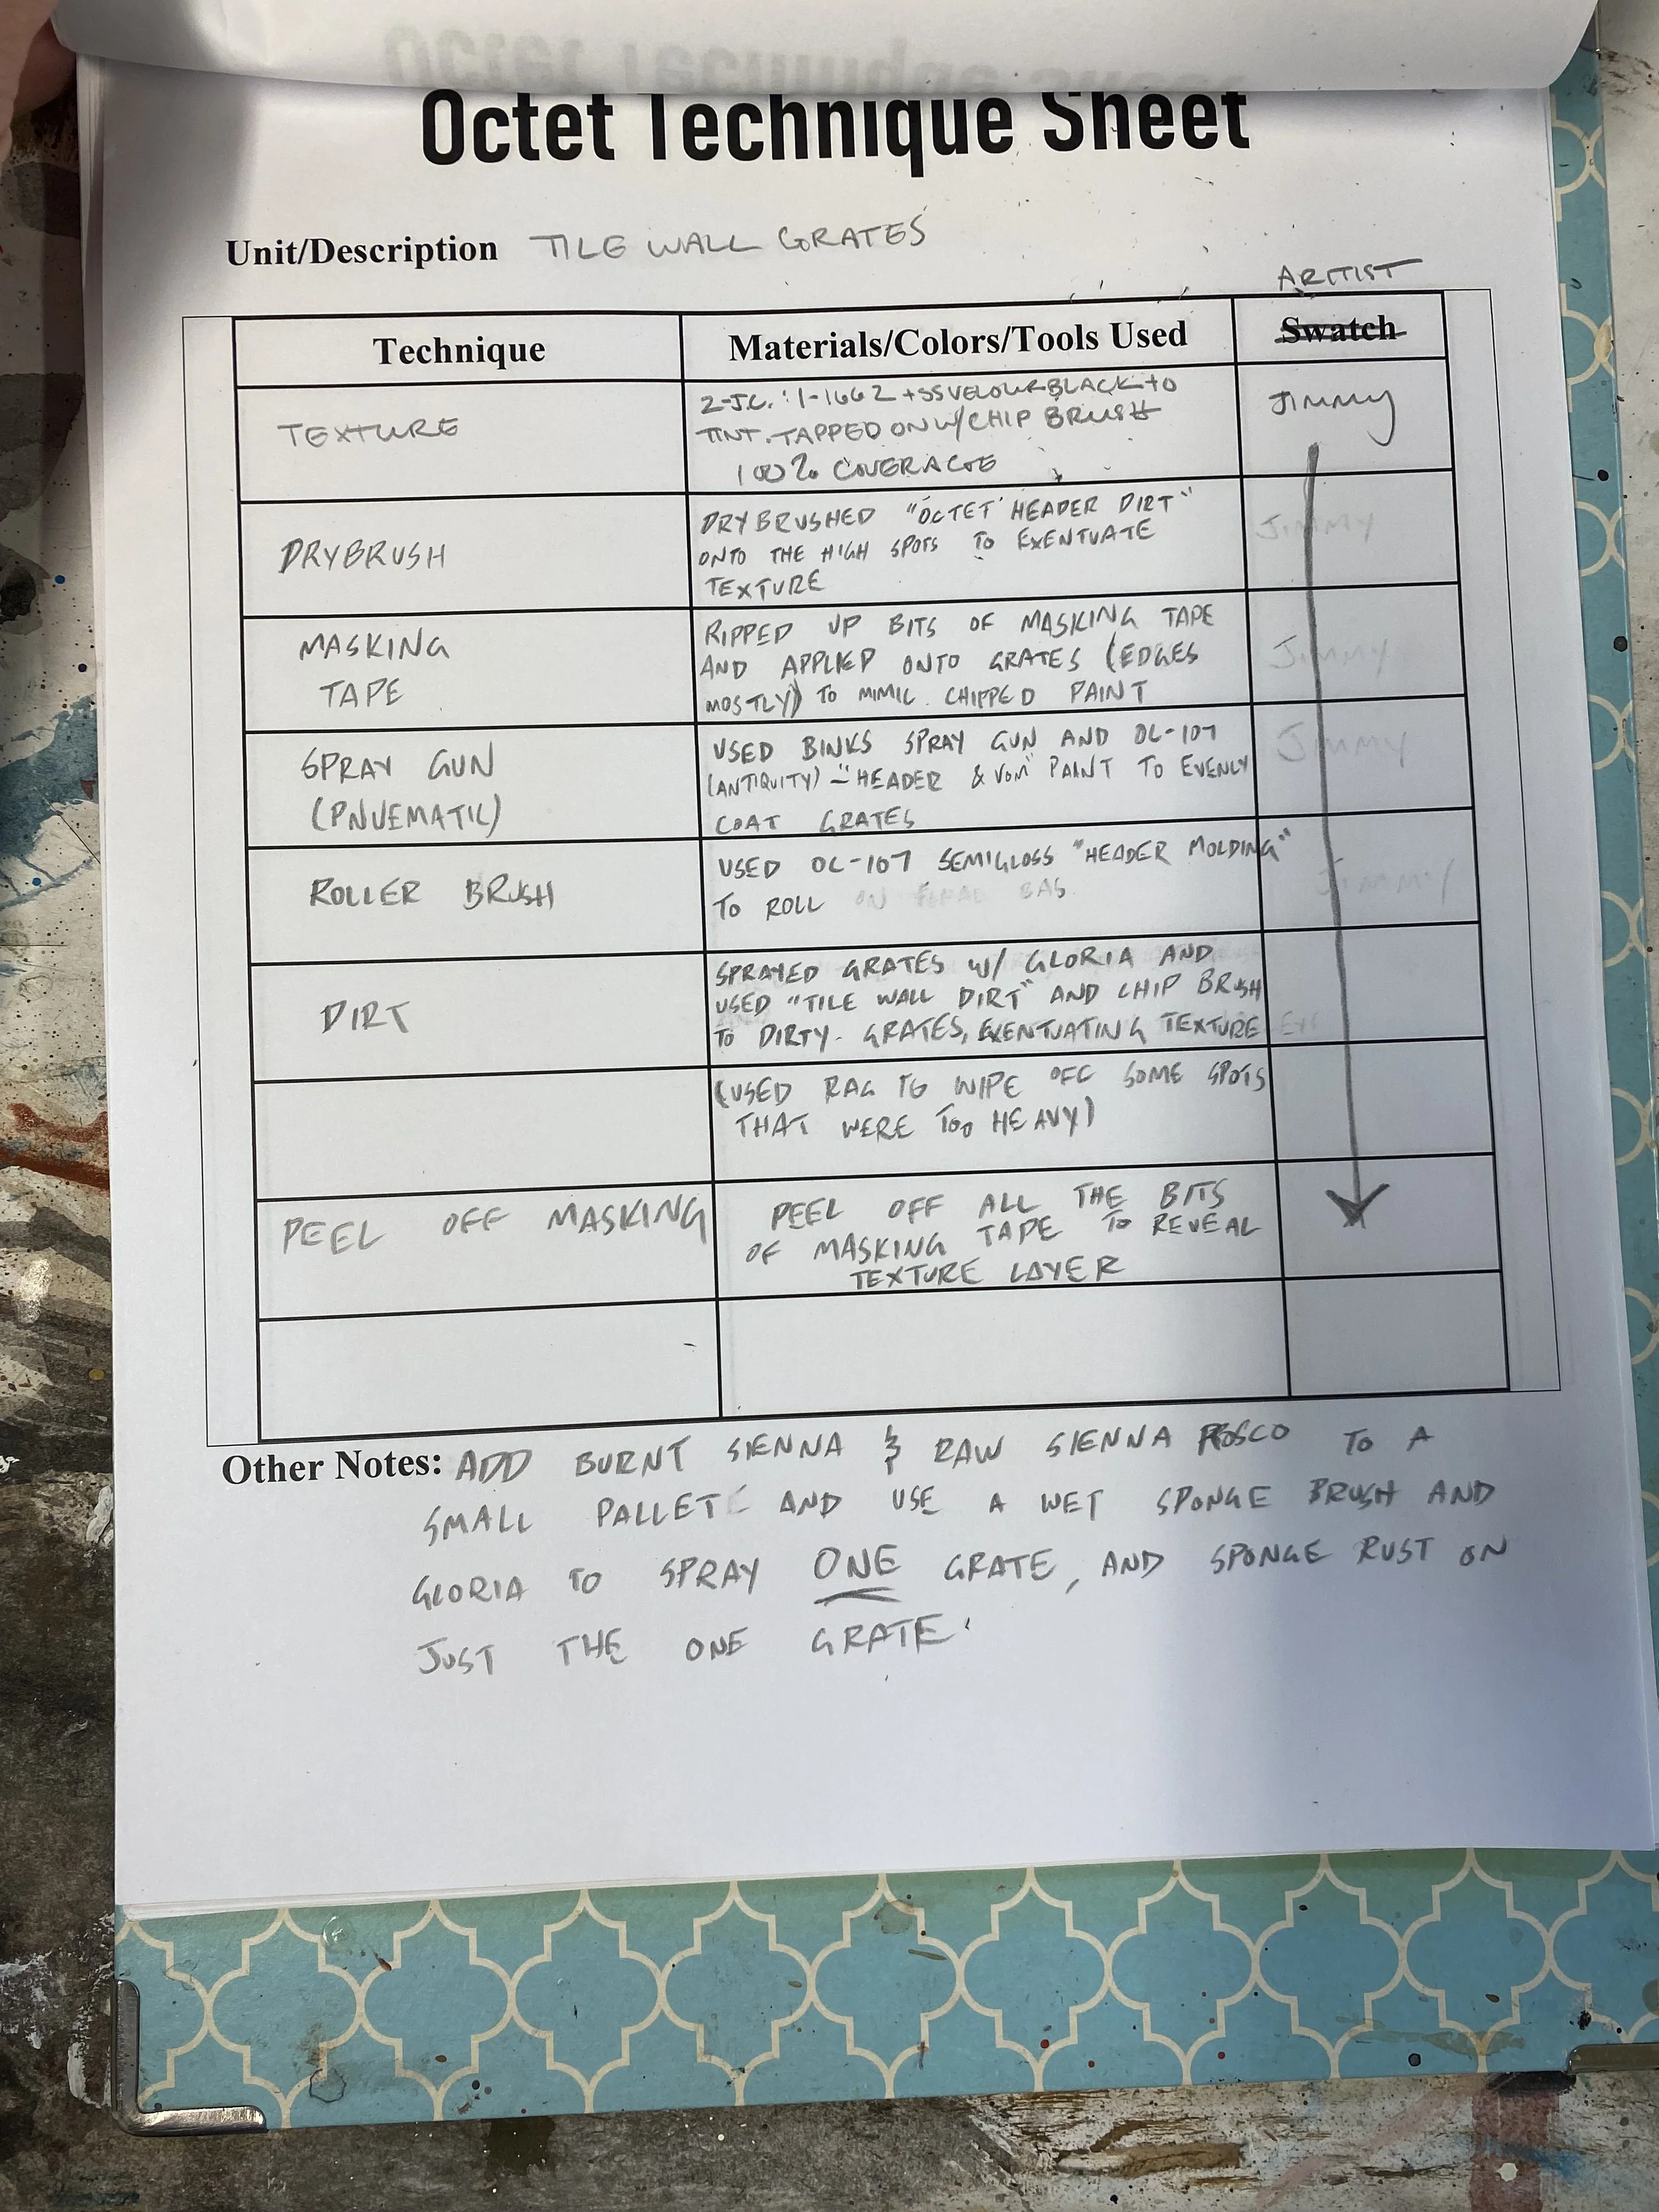 Octet Technique Sheet
Unit/Description TILE WALL GRATES
ARTIST
Technique
Materials/Colors/Tools Used
Swatch
TEXTURE
2-J.C. : 1-1662 + SS VELOUR BLACK TO
TINT. TAPPED ON W/ CHIP BRUSH
100% COVERAGE
Jimmy
DRYBRUSH
DRYBRUSHED "OCTET HEADER DIRT"
ONTO THE HIGH SPOTS TO EXENTUATE
TEXTURE
Jimmy
MASKING
TAPE
RIPPED UP BITS OF MASKING TAPE
AND APPLIED ONTO GRATES (EDGES
MOSTLY) TO MIMIC CHIPPED PAINT
Jimmy
SPRAY GUN
(PNUEMATIC)
USED BINKS SPRAY GUN AND OC-107
(ANTIQUITY) - "HEADER & VOM" PAINT TO EVENLY
COAT GRATES
Jimmy
ROLLER BRUSH
USED OC-107 SEMIGLOSS "HEADER MOLDING"
TO ROLL ON BAS
Jimmy
DIRT
SPRAYED GRATES W/ GLORIA AND
USED "TILE WALL DIRT" AND CHIP BRUSH
TO DIRTY GRATES, EXENTUATING TEXTURE
(USED RAG TO WIPE OFF SOME SPOTS
THAT WERE TOO HEAVY)
PEEL OFF MASKING
PEEL OFF ALL THE BITS
OF MASKING TAPE TO REVEAL
TEXTURE LAYER
Other Notes: ADD BURNT SIENNA & RAW SIENNA ROSCO TO A
SMALL PALLETE AND USE A WET SPONGE BRUSH AND
GLORIA TO SPRAY ONE GRATE, AND SPONGE RUST ON
JUST THE ONE GRATE.